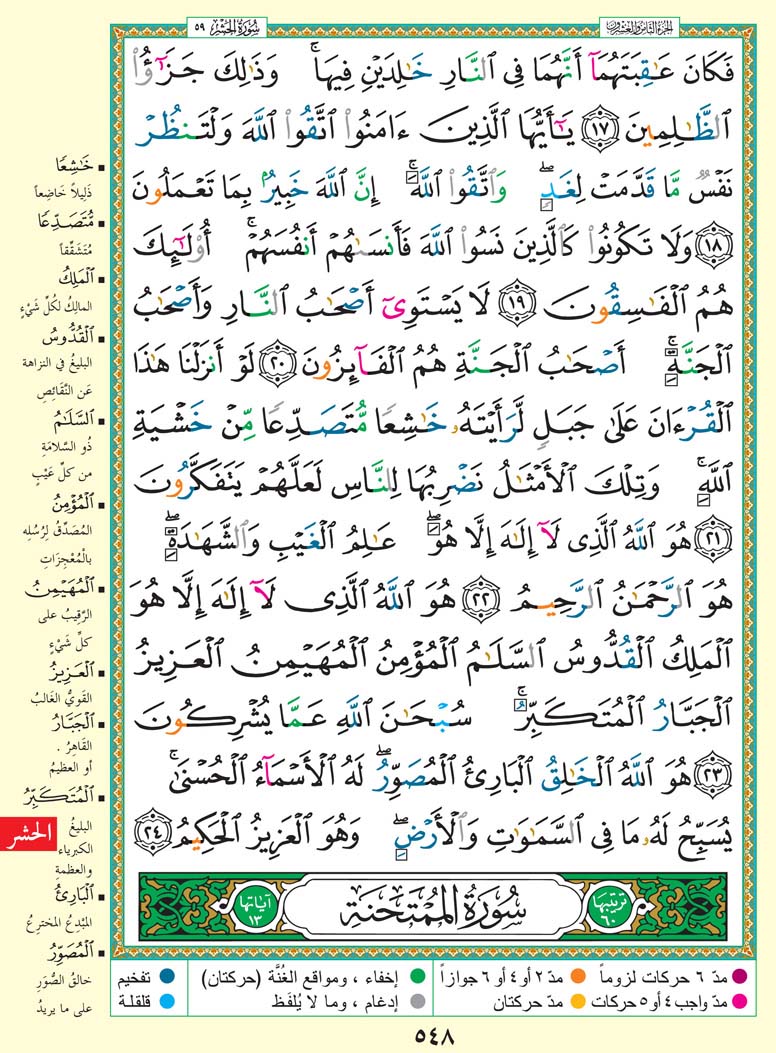 الجزء الثامن والعشرون
سورة الحشر ٥٩
فَكَانَ عَٰقِبَتَهُمَآ أَنَّهُمَا فِى ٱلنَّارِ خَٰلِدَيْنِ فِيهَا ۚ وَذَٰلِكَ جَزَٰٓؤُا۟
ٱلظَّٰلِمِينَ ١٧ يَٰٓأَيُّهَا ٱلَّذِينَ ءَامَنُوا۟ ٱتَّقُوا۟ ٱللَّهَ وَلْتَنظُرْ
نَفْسٌ مَّا قَدَّمَتْ لِغَدٍ ۖ وَٱتَّقُوا۟ ٱللَّهَ ۚ إِنَّ ٱللَّهَ خَبِيرٌۢ بِمَا تَعْمَلُونَ
١٨ وَلَا تَكُونُوا۟ كَٱلَّذِينَ نَسُوا۟ ٱللَّهَ فَأَنسَىٰهُمْ أَنفُسَهُمْ ۚ أُو۟لَٰٓئِكَ
هُمُ ٱلْفَٰسِقُونَ ١٩ لَا يَسْتَوِىٓ أَصْحَٰبُ ٱلنَّارِ وَأَصْحَٰبُ
ٱلْجَنَّةِ ۚ أَصْحَٰبُ ٱلْجَنَّةِ هُمُ ٱلْفَآئِزُونَ ٢٠ لَوْ أَنزَلْنَا هَٰذَا
ٱلْقُرْءَانَ عَلَىٰ جَبَلٍ لَّرَأَيْتَهُۥ خَٰشِعًا مُّتَصَدِّعًا مِّنْ خَشْيَةِ
ٱللَّهِ ۚ وَتِلْكَ ٱلْأَمْثَٰلُ نَضْرِبُهَا لِلنَّاسِ لَعَلَّهُمْ يَتَفَكَّرُونَ
٢١ هُوَ ٱللَّهُ ٱلَّذِى لَآ إِلَٰهَ إِلَّا هُوَ ۖ عَٰلِمُ ٱلْغَيْبِ وَٱلشَّهَٰدَةِ ۖ
هُوَ ٱلرَّحْمَٰنُ ٱلرَّحِيمُ ٢٢ هُوَ ٱللَّهُ ٱلَّذِى لَآ إِلَٰهَ إِلَّا هُوَ
ٱلْمَلِكُ ٱلْقُدُّوسُ ٱلسَّلَٰمُ ٱلْمُؤْمِنُ ٱلْمُهَيْمِنُ ٱلْعَزِيزُ
ٱلْجَبَّارُ ٱلْمُتَكَبِّرُ ۚ سُبْحَٰنَ ٱللَّهِ عَمَّا يُشْرِكُونَ
٢٣ هُوَ ٱللَّهُ ٱلْخَٰلِقُ ٱلْبَارِئُ ٱلْمُصَوِّرُ ۖ لَهُ ٱلْأَسْمَآءُ ٱلْحُسْنَىٰ ۚ
يُسَبِّحُ لَهُۥ مَا فِى ٱلسَّمَٰوَٰتِ وَٱلْأَرْضِ ۖ وَهُوَ ٱلْعَزِيزُ ٱلْحَكِيمُ ٢٤
ترتيبها ٦٠
سُورَةُ المُمْتَحَنَةِ
آياتها ١٣
خَٰشِعًا
ذَلِيلاً خَاضِعاً
مُّتَصَدِّعًا
مُتَشَقِّقاً
ٱلْمَلِكُ
المالِكُ لكُلِّ شَيْءٍ
ٱلْقُدُّوسُ
البليغُ في النزاهة
عَنِ النَّقائِصِ
ٱلسَّلَٰمُ
ذُو السَّلامَةِ
من كلِّ عَيْبٍ
ٱلْمُؤْمِنُ
المُصَدِّقُ لِرُسُلِه
بالْمُعْجِزاتِ
ٱلْمُهَيْمِنُ
الرَّقيبُ على
كلِّ شَيْءٍ
ٱلْعَزِيزُ
القَوِيُّ الغَالبُ
ٱلْجَبَّارُ
القَاهِرُ .
أو العظيمُ
ٱلْمُتَكَبِّرُ
البليغُ
الكبرياءِ
والعظمةِ
ٱلْبَارِئُ
المُبْدِعُ المخترعُ
ٱلْمُصَوِّرُ
خالقُ الصُّوَرِ
على ما يريدُ
الحشر
مدّ ٦ حركات لزوماً
مدّ ٢ أو ٤ أو ٦ جوازاً
إخفاء ، ومواقع الغُنَّة (حركتان)
تفخيم
مدّ واجب ٤ أو ٥ حركات
مدّ حركتان
إدغام ، وما لا يُلفَظ
قلقلة
٥٤٨